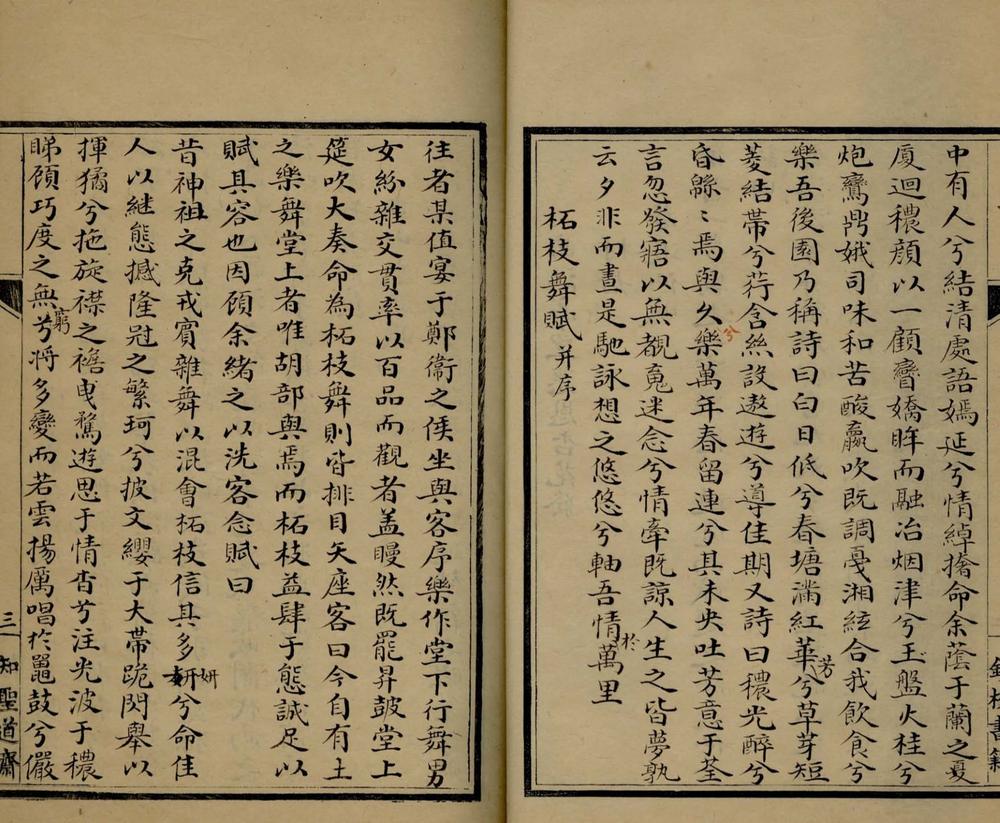 中有人兮結清處語嫣延兮情綽擔命余蔭于蘭之夏
廈迴穠顔以一顧矕嬌眸而融冶烟津兮玉盤火桂兮
炮鸞鼎娥司味和苦酸嬴吹既調戛湘絃合我飲食兮
樂吾後園乃稱詩曰白日低兮春塘滿紅華兮草芽短
芳
菱結帶兮荇含絲設遨遊兮導佳期又詩曰穠光醉兮
昏緜〻焉與久樂萬年春留連兮其未央吐芳意于荃
兮
言忽發寤以無覩㝹迷念兮情牽既諒人生之皆夢孰
云夕非而晝是馳詠想之悠悠兮軸吾情萬里
於
柘枝舞賦 并序
往者某值宴于鄭衞之侯坐與客序樂作堂下行舞男
女紛雜交貫率以百品而觀者盖矕然既罷昇鼓堂上
筵吹大奏命為柘枝舞則皆排目矢座客曰今自有土
之樂舞堂上者唯胡部與焉而柘枝益肆于態誠足以
賦其容也因顧余緒之以洗客念賦曰
昔神祖之克戎賓雜舞以混會柘枝信其多妍兮命佳
妍
人以継態撼隆冠之繁珂兮披文纓于大帶跪閃舉以
揮獝兮拖旋襟之襜曳騖遊思于情杳兮注光波于穠
睇顧巧度之無兮將多變而若雲揚厲唱於鼉鼓兮儼
窮
三 知聖道齋
鈔校書籍